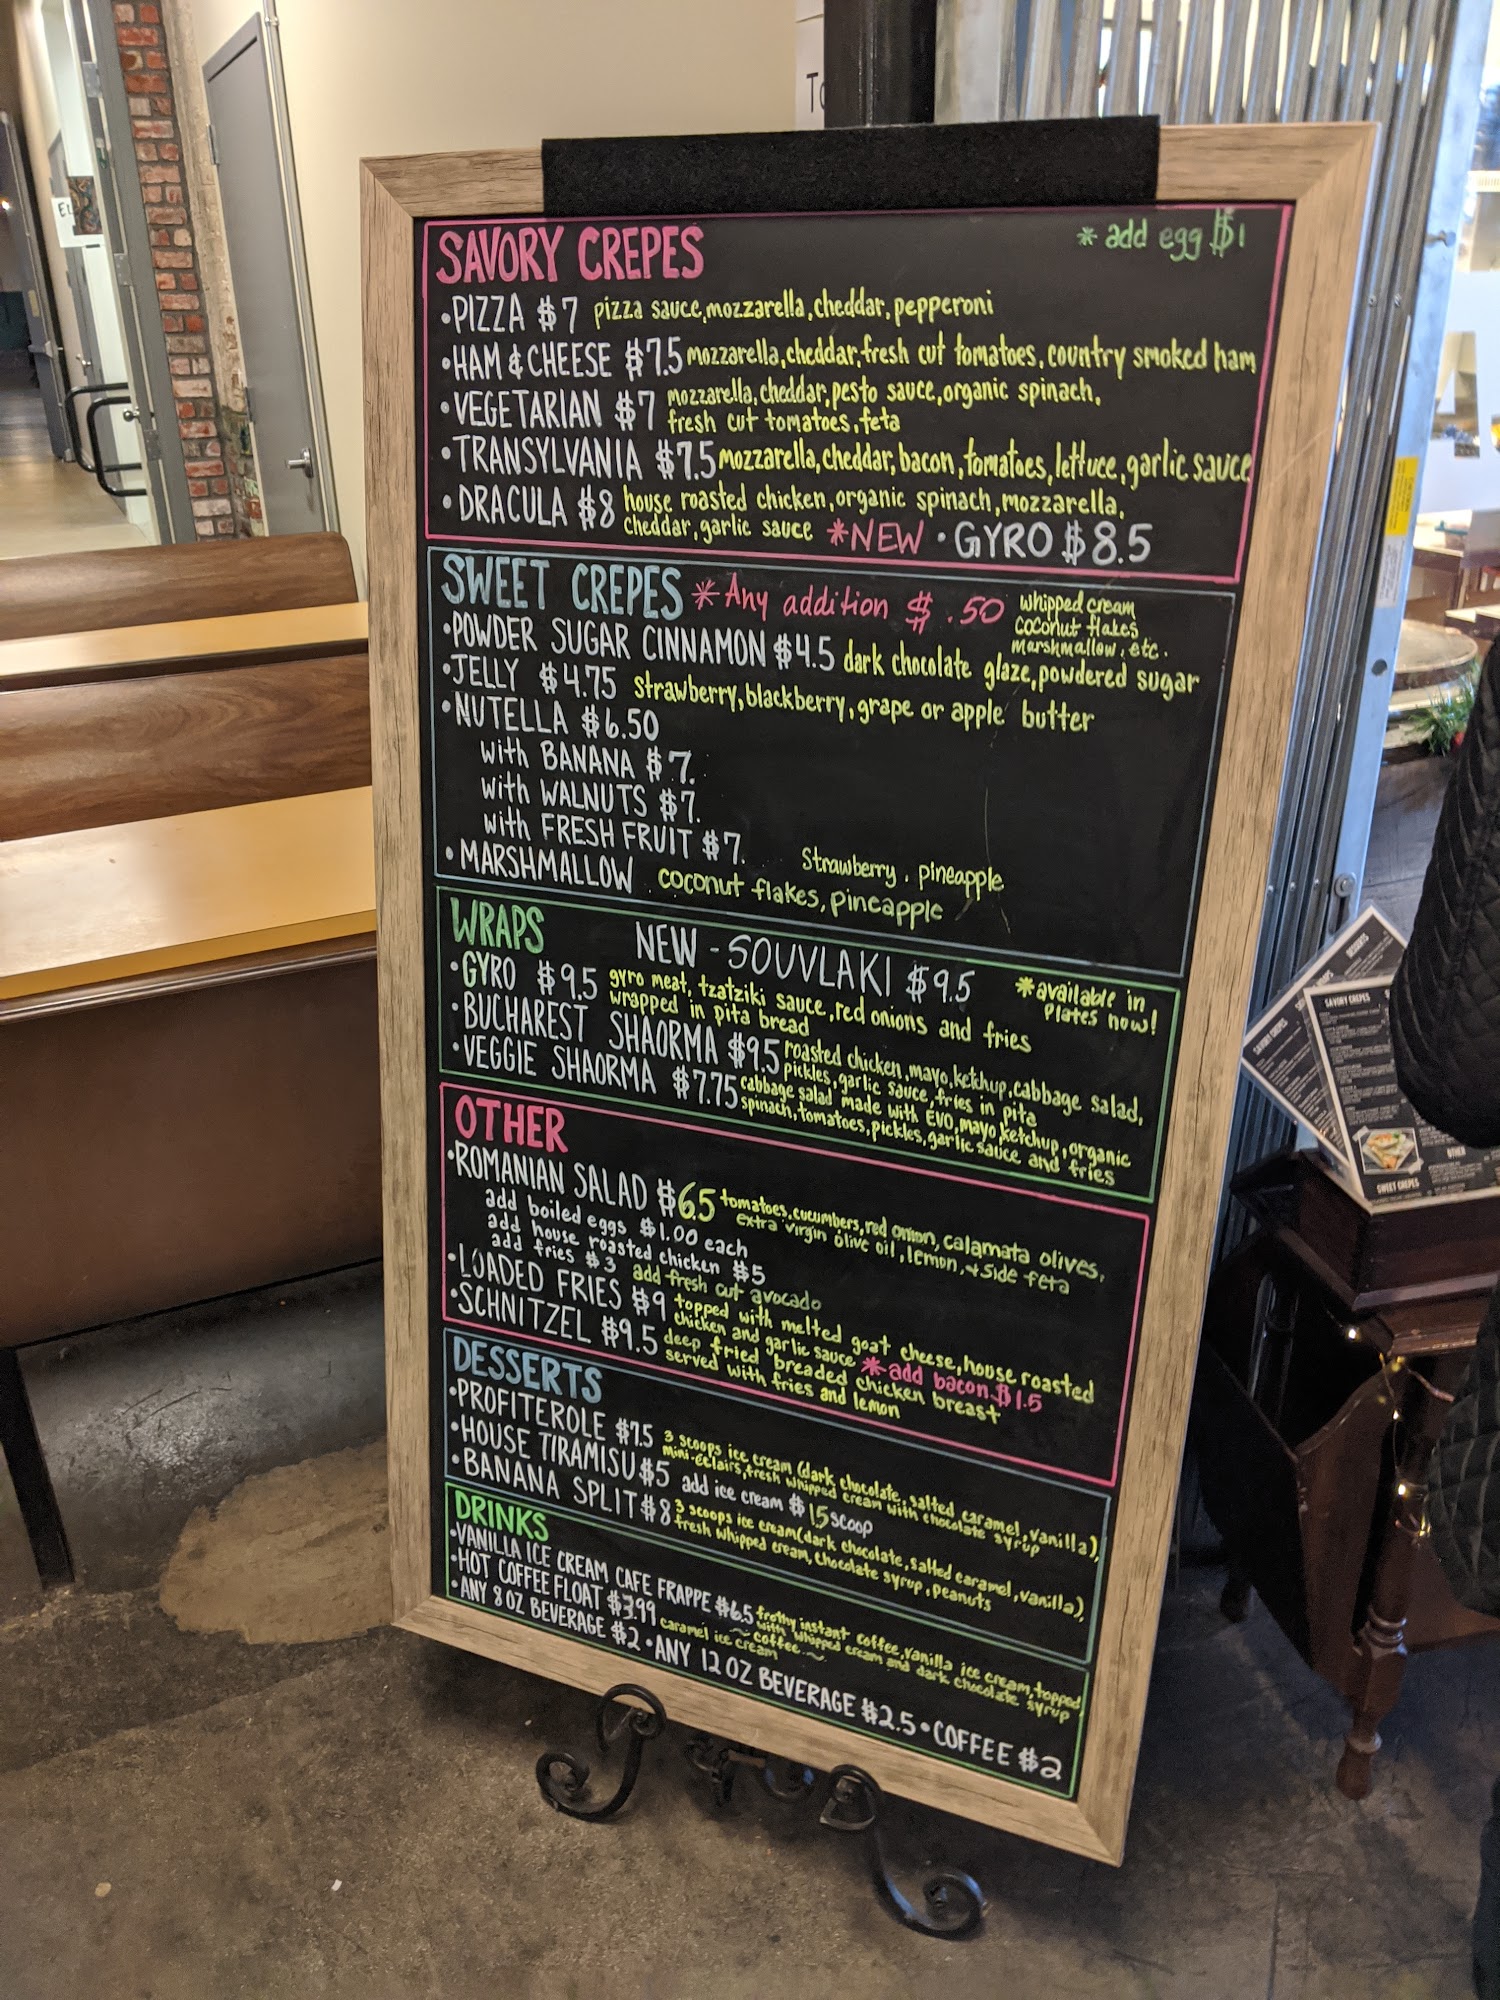 To
EL
SAVORY CREPES * add egg $1
•PIZZA $7 pizza sauce, mozzarella, cheddar, pepperoni
•HAM & CHEESE $7.5 mozzarella, cheddar, fresh cut tomatoes, country smoked ham
•VEGETARIAN $7 mozzarella, cheddar, pesto sauce, organic spinach,
fresh cut tomatoes, feta
•TRANSYLVANIA $7.5 mozzarella, cheddar, bacon, tomatoes, lettuce, garlic sauce
•DRACULA $8 house roasted chicken, organic spinach, mozzarella,
cheddar, garlic sauce *NEW • GYRO $8.5
SWEET CREPES * Any addition $.50 whipped cream
coconut flakes
marshmallow, etc.
•POWDER SUGAR CINNAMON $4.5 dark chocolate glaze, powdered sugar
•JELLY $4.75 strawberry, blackberry, grape or apple butter
•NUTELLA $6.50
with BANANA $7.
with WALNUTS $7.
with FRESH FRUIT $7. Strawberry, pineapple
•MARSHMALLOW coconut flakes, pineapple
WRAPS NEW - SOUVLAKI $9.5 *available in
plates now!
•GYRO $9.5 gyro meat, tzatziki sauce, red onions and fries
wrapped in pita bread
•BUCHAREST SHAORMA $9.5 roasted chicken, mayo, ketchup, cabbage salad,
pickles, garlic sauce, fries in pita
•VEGGIE SHAORMA $7.75 cabbage salad made with EVO, mayo, ketchup, organic
spinach, tomatoes, pickles, garlic sauce and fries
OTHER
•ROMANIAN SALAD $6.5 tomatoes, cucumbers, red onion, calamata olives,
extra virgin olive oil, lemon, + side feta
add boiled eggs $1.00 each
add house roasted chicken $5
add fries $3 add fresh cut avocado
•LOADED FRIES $9 topped with melted goat cheese, house roasted
chicken and garlic sauce *add bacon $1.5
•SCHNITZEL $9.5 deep fried breaded chicken breast
served with fries and lemon
DESSERTS
•PROFITEROLE $7.5 3 scoops ice cream (dark chocolate, salted caramel, vanilla),
mini-éclairs, fresh whipped cream with chocolate syrup
•HOUSE TIRAMISU $5 add ice cream $1.5 scoop
•BANANA SPLIT $8 3 scoops ice cream (dark chocolate, salted caramel, vanilla),
fresh whipped cream, chocolate syrup, peanuts
DRINKS
•VANILLA ICE CREAM CAFE FRAPPE $6.5 frothy instant coffee, vanilla ice cream, topped
with whipped cream and dark chocolate syrup
•HOT COFFEE FLOAT $3.99 caramel ice cream ~ coffee ~
•ANY 8 OZ BEVERAGE $2 •ANY 12 OZ BEVERAGE $2.5 •COFFEE $2
DESSERTS
SAVORY CREPES
SAVORY CREPES
OTHER
SWEET CREPES